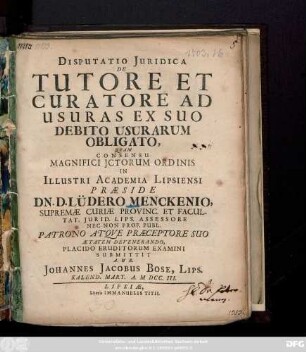 DISPUTATIO JURIDICA
DE
TUTORE ET
CURATORE AD
USURAS EX SUO
DEBITO USURARUM
OBLIGATO,
QUAM
CONSENSU
MAGNIFICI JCTORUM ORDINIS
IN
ILLUSTRI ACADEMIA LIPSIENSI
PRÆSIDE
DN. D. LÜDERO MENCKENIO,
SUPREMÆ CURIÆ PROVINC. ET FACUL-
TAT. JURID. LIPS. ASSESSORE
NEC NON PROF. PUBL.
PATRONO ATQVE PRÆCEPTORE SUO
ÆTATEM DEVENERANDO,
PLACIDO ERUDITORUM EXAMINI
SUBMITTIT
JOHANNES JACOBUS BOSE, LIPS.
KALEND. MART. A. M DCC. III.
LIPSIÆ,
Literis IMMANUELIS TITII.